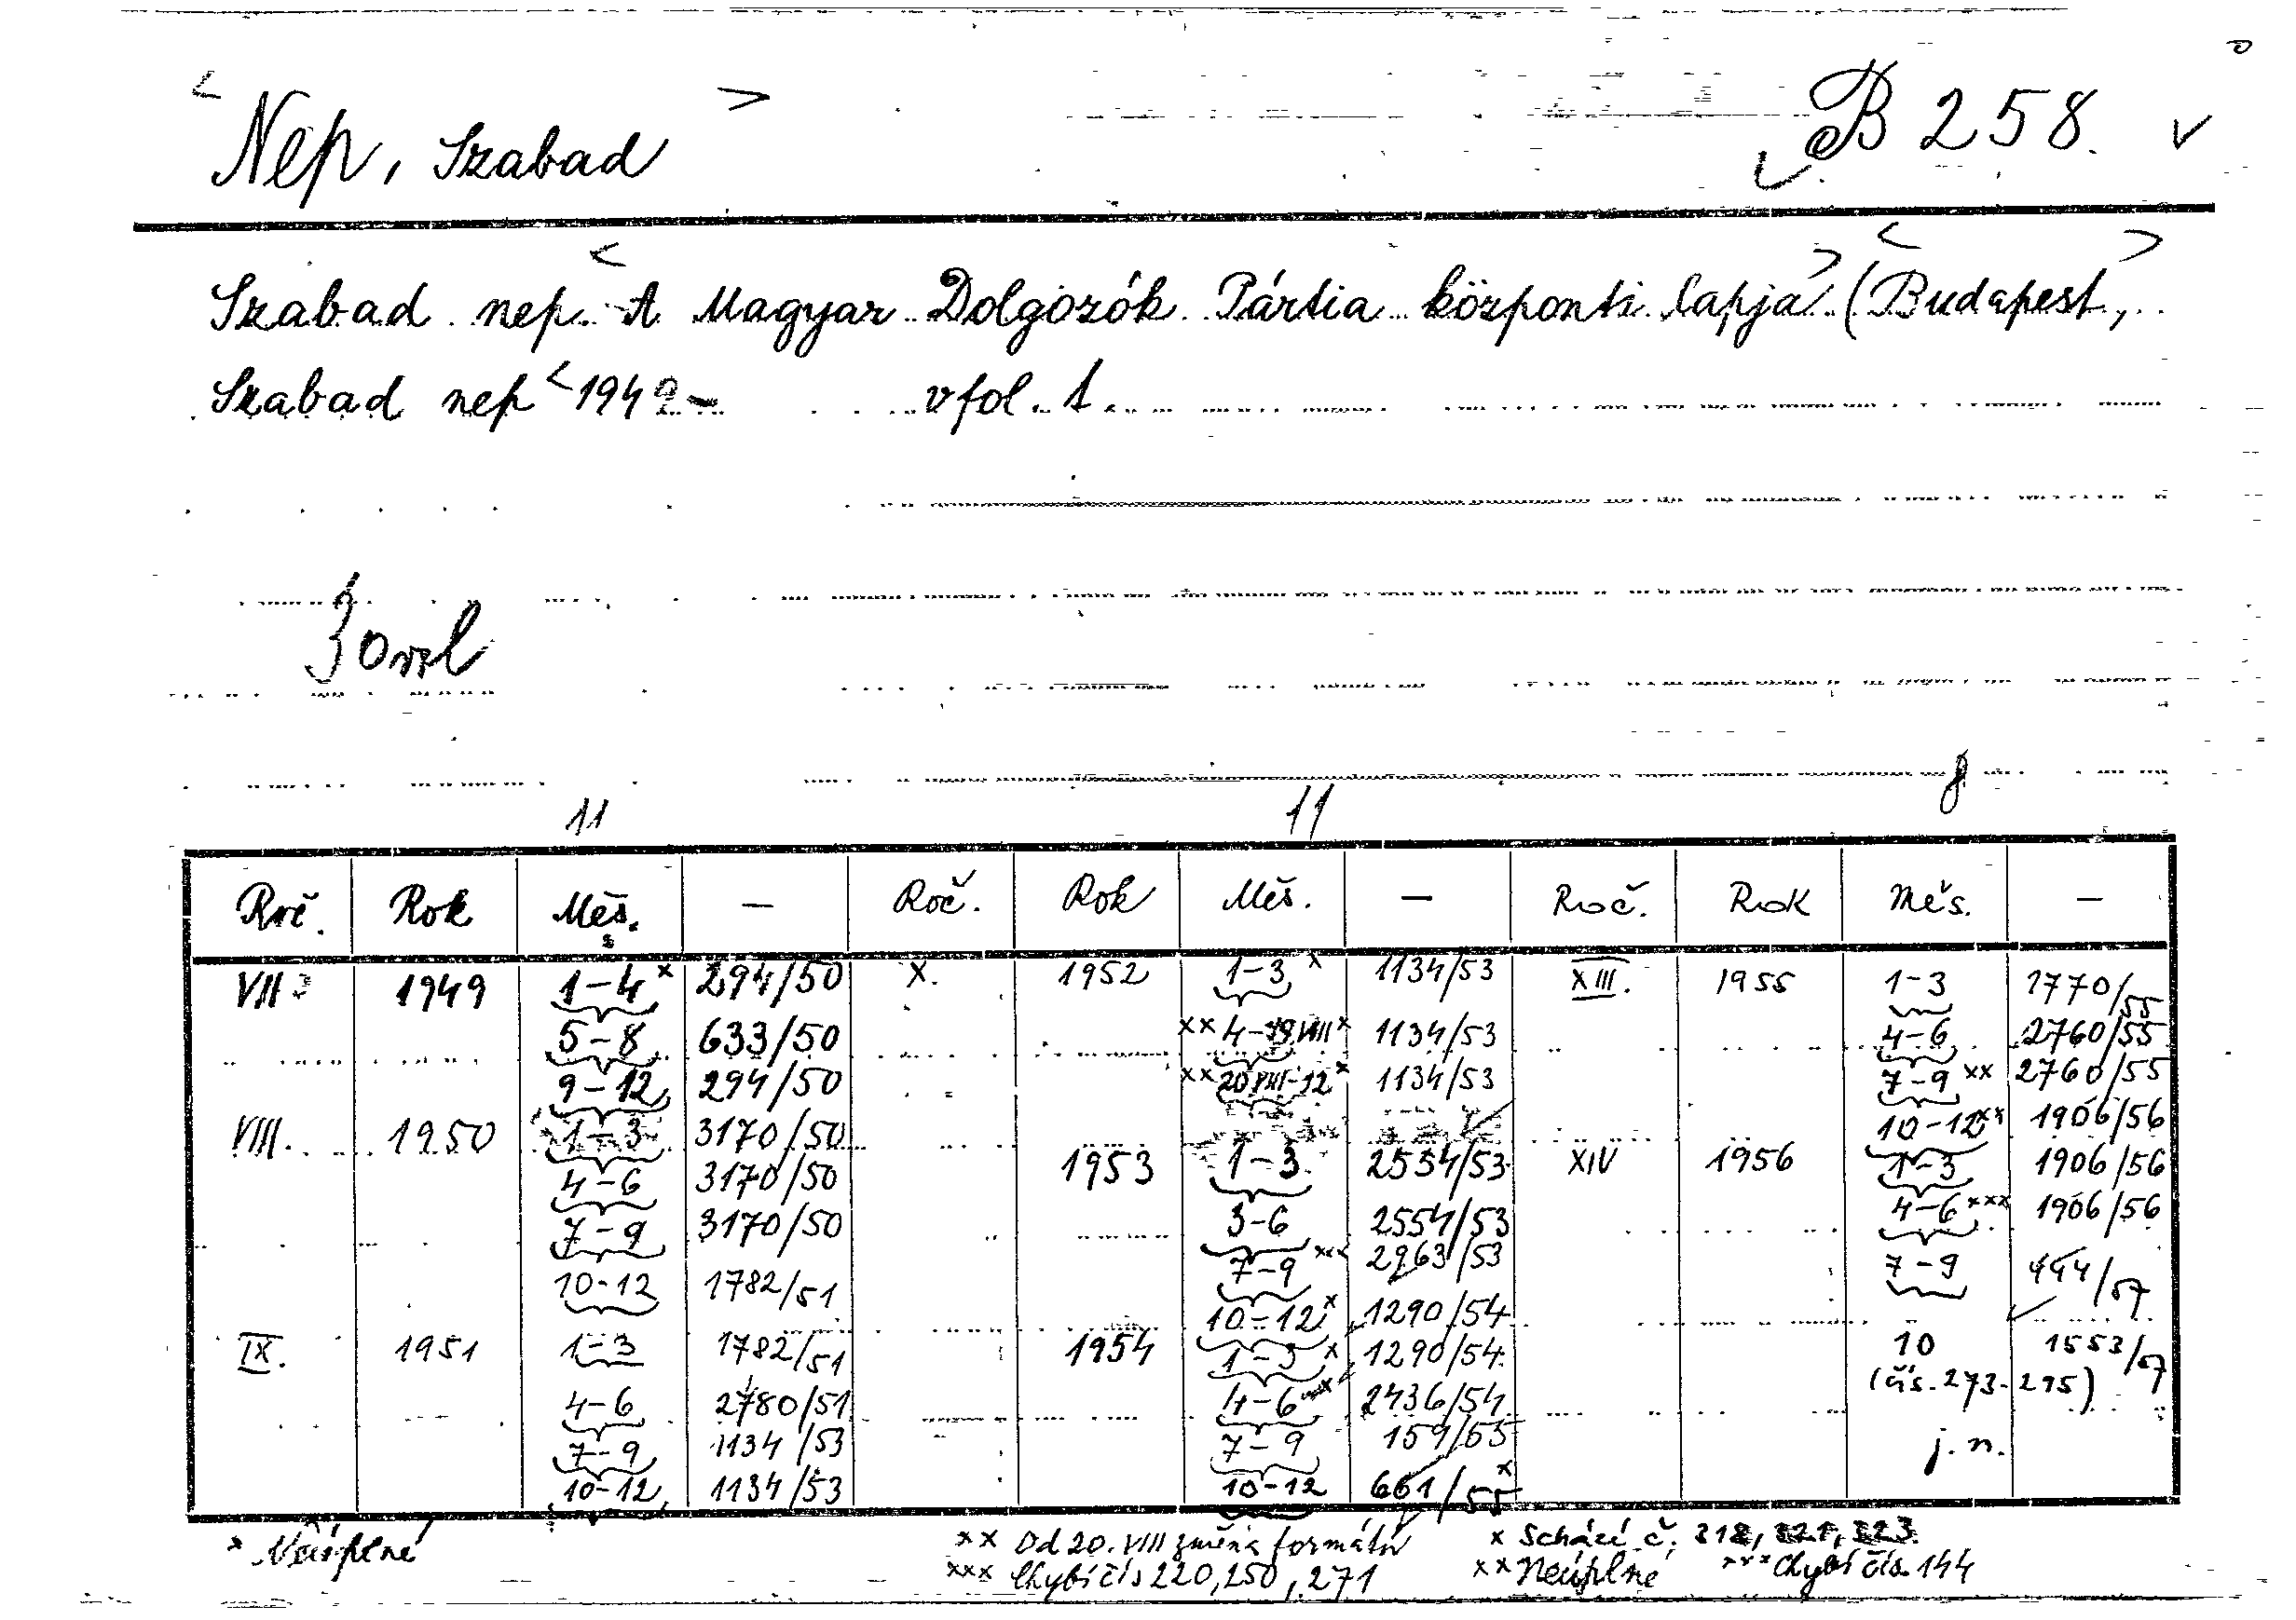 < Nep, Szabad > B 258. v
Szabad nep < A Magyar Dolgozók Pártia központi lapja > (< Budapest, >
Szabad nep < 1949 - v fol. 1.
30 vol
11 11 8
Roč. Rok Měs. — Roč. Rok Měs. — Roč. Rok Měs. —
VII 1949 1-4 x 294/50 X. 1952 1-3 x 1134/53 XIII. 1955 1-3 2770/55
5-8 633/50 xx 4-19.VIII x 1134/53 4-6 2760/55
9-12 294/50 xx 20.VIII-12 x 1134/53 7-9 xx 2760/55
VIII. 1950 1-3 3170/50 10-12 xx 1906/56
4-6 3170/50 1953 1-3 2554/53 XIV 1956 1-3 1906/56
7-9 3170/50 3-6 2554/53 4-6 xxx 1906/56
10-12 1782/51 7-9 xxx 2963/53 7-9 444/57
10-12 x 1290/54
IX. 1951 1-3 1782/51 1954 1-3 x 1290/54 10 1553/57
4-6 2780/51 4-6 2436/54 (čís. 273-295)
7-9 1134/53 7-9 159/55 j. n.
10-12 1134/53 10-12 661/55 x
x Neúplné xx Od 20. VIII změna formátu x Schází č. 318, 321, 323.
xxx Chybí čís 220, 250, 271 xx Neúplné xxx Chybí čís. 144